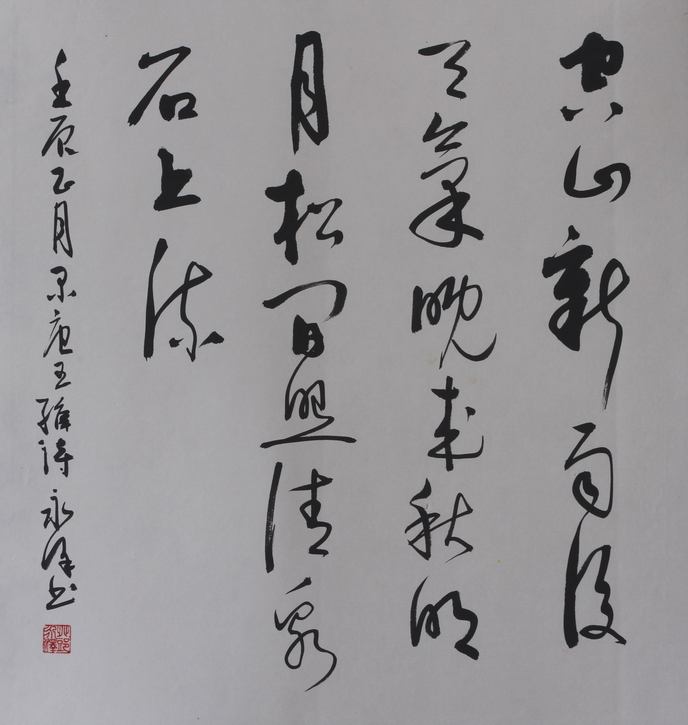 空山新雨後
天氣晚来秋明
月松间照清泉
石上流
壬辰正月录唐王維詩 永 书